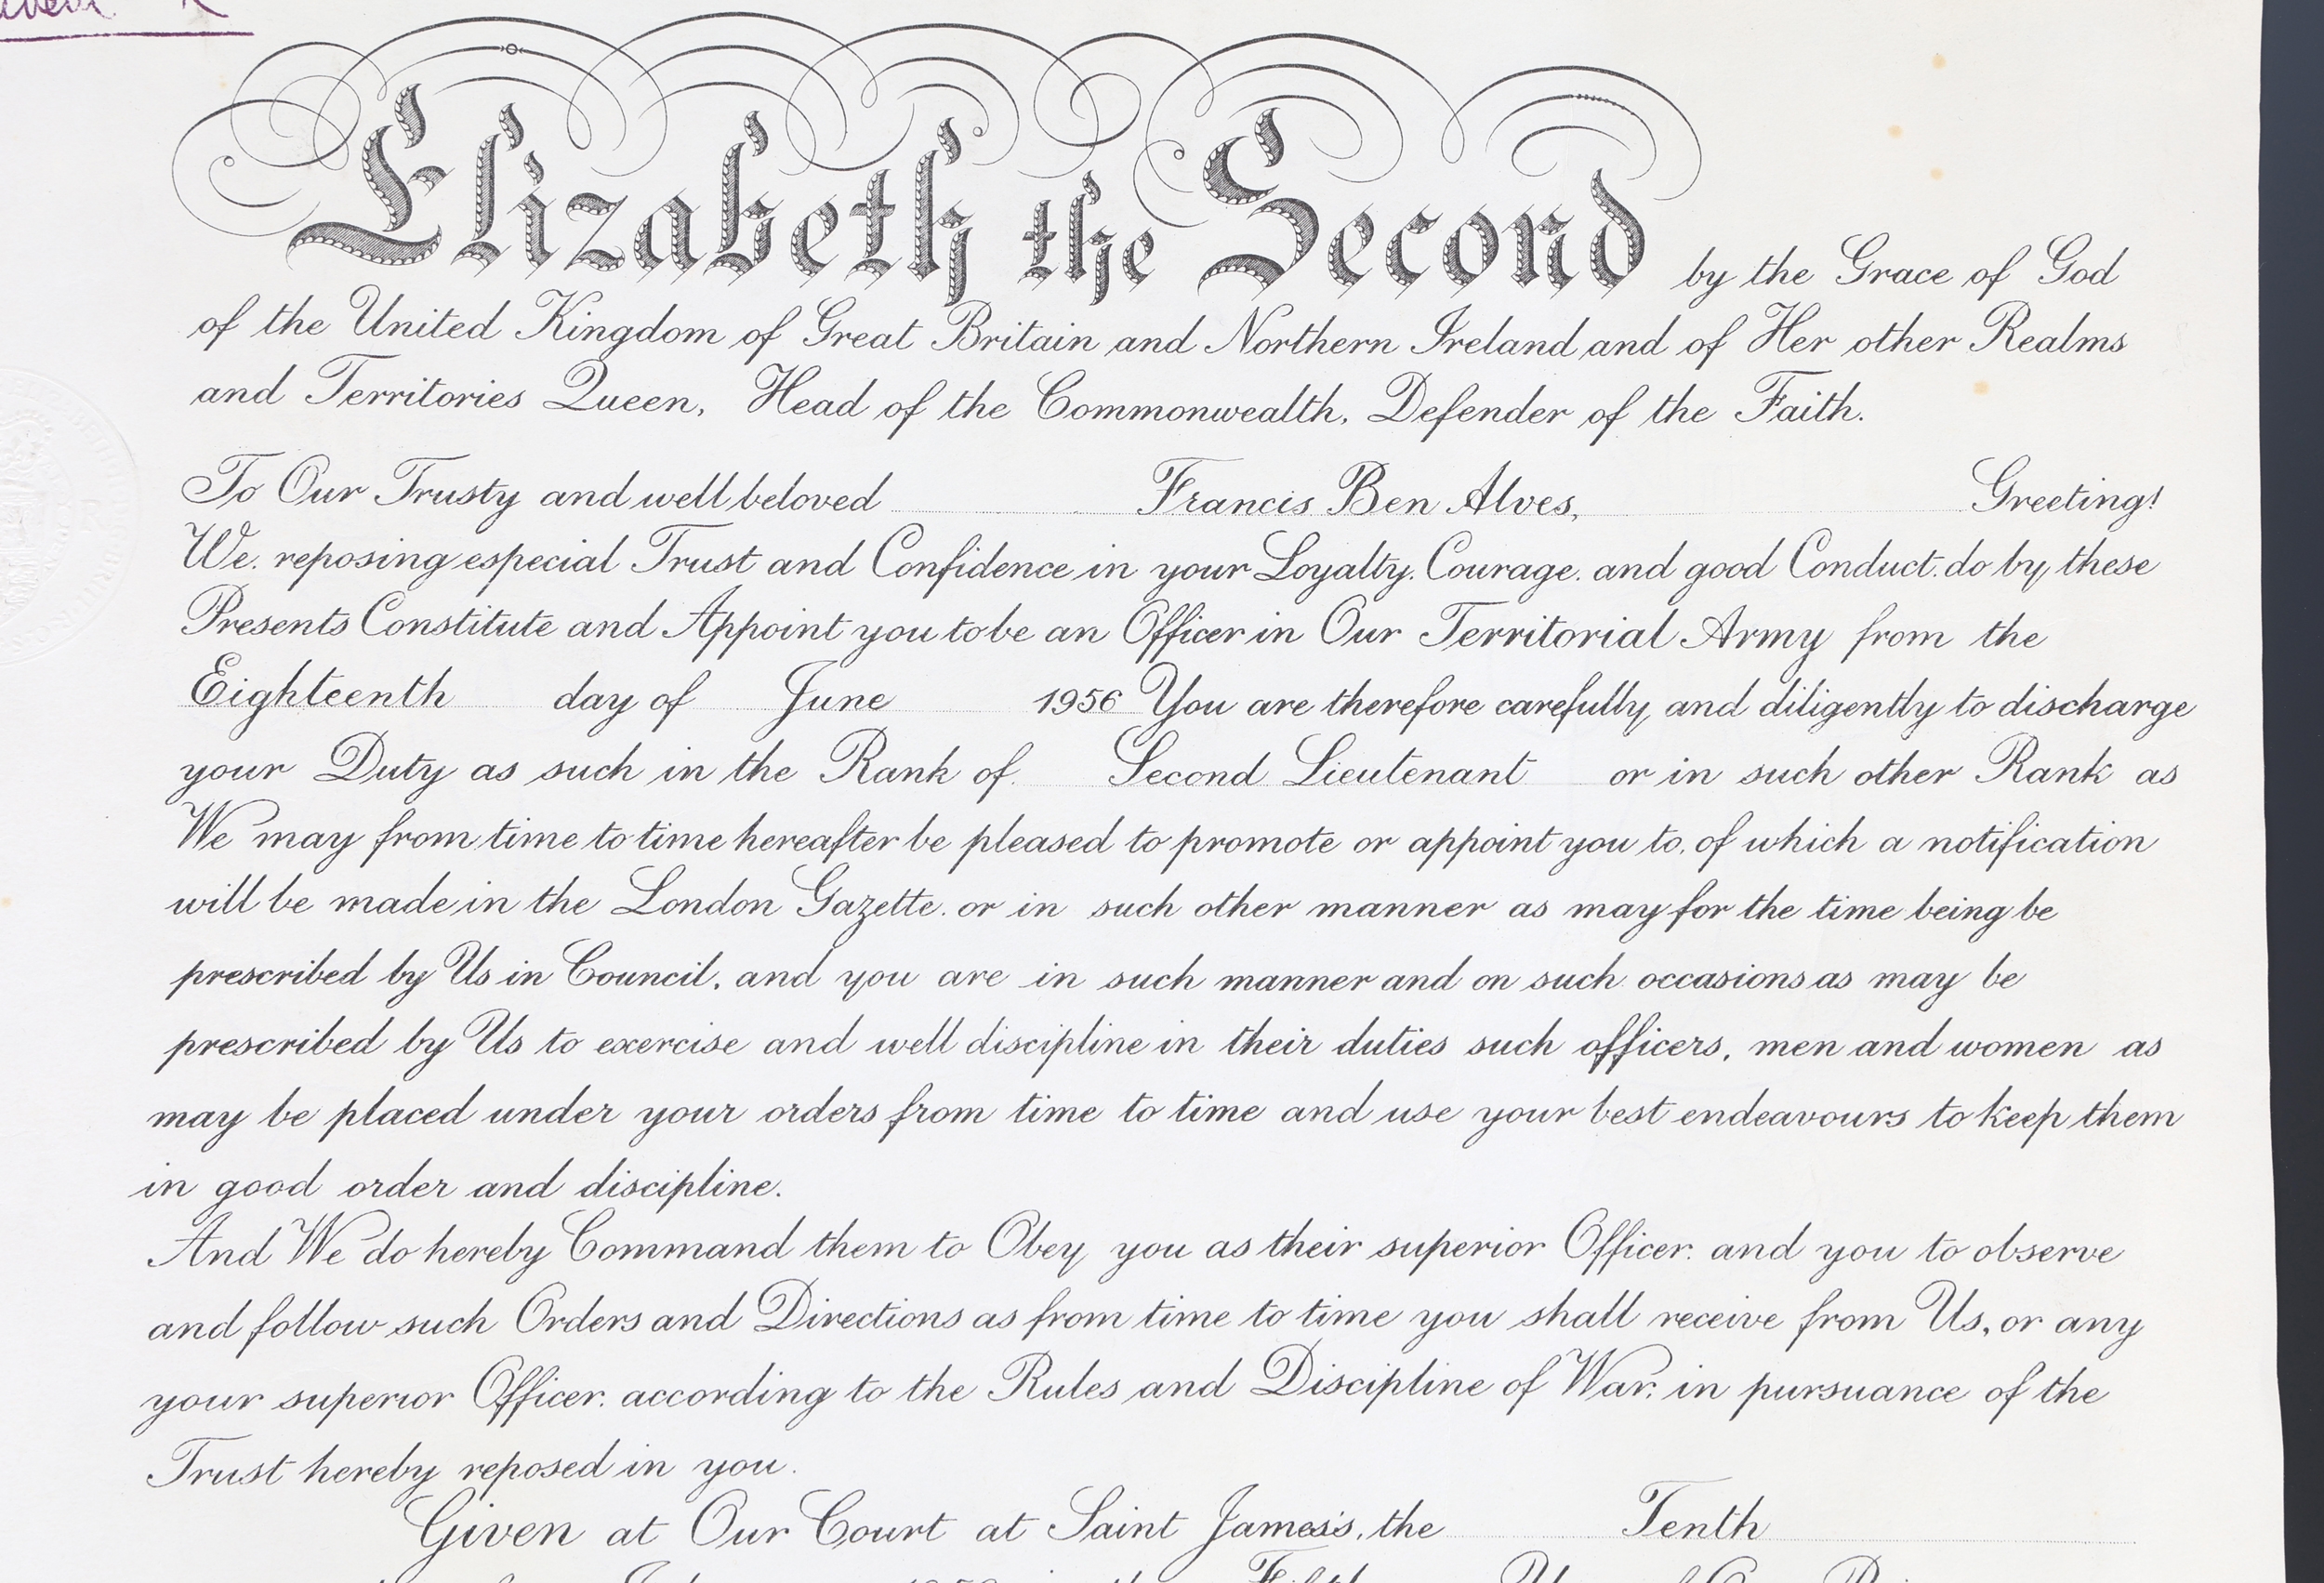 Elizabeth the Second by the Grace of God
of the United Kingdom of Great Britain and Northern Ireland and of Her other Realms
and Territories Queen, Head of the Commonwealth, Defender of the Faith.
To Our Trusty and well beloved Francis Ben Alves, Greeting!
We, reposing especial Trust and Confidence in your Loyalty, Courage, and good Conduct, do by these
Presents Constitute and Appoint you to be an Officer in Our Territorial Army from the
Eighteenth day of June 1956 You are therefore carefully and diligently to discharge
your Duty as such in the Rank of Second Lieutenant or in such other Rank as
We may from time to time hereafter be pleased to promote or appoint you to, of which a notification
will be made in the London Gazette, or in such other manner as may for the time being be
prescribed by Us in Council, and you are in such manner and on such occasions as may be
prescribed by Us to exercise and well discipline in their duties such officers, men and women as
may be placed under your orders from time to time and use your best endeavours to keep them
in good order and discipline.
And We do hereby Command them to Obey you as their superior Officer, and you to observe
and follow such Orders and Directions as from time to time you shall receive from Us, or any
your superior Officer, according to the Rules and Discipline of War, in pursuance of the
Trust hereby reposed in you.
Given at Our Court at Saint James's, the Tenth